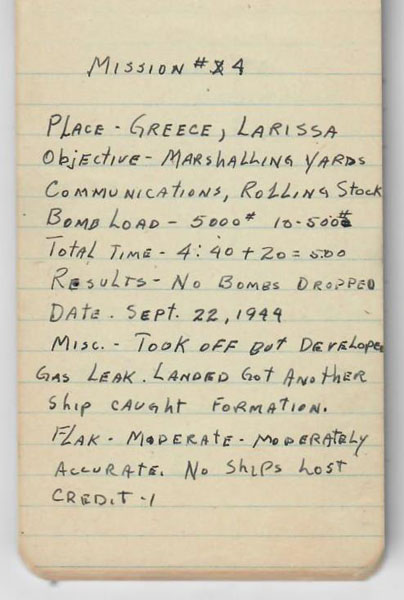 Mission # 4
Place - Greece, Larissa
Objective - Marshalling Yards
Communications, Rolling Stock
Bomb Load - 5000# 10-500#
Total Time - 4:40 + 20 = 5:00
Results - No Bombs Dropped
Date. Sept. 22, 1944
Misc. - Took off but Develope
Gas Leak. Landed Got Another
Ship caught formation.
Flak - Moderate - Moderately
Accurate. No Ships Lost
Credit - 1